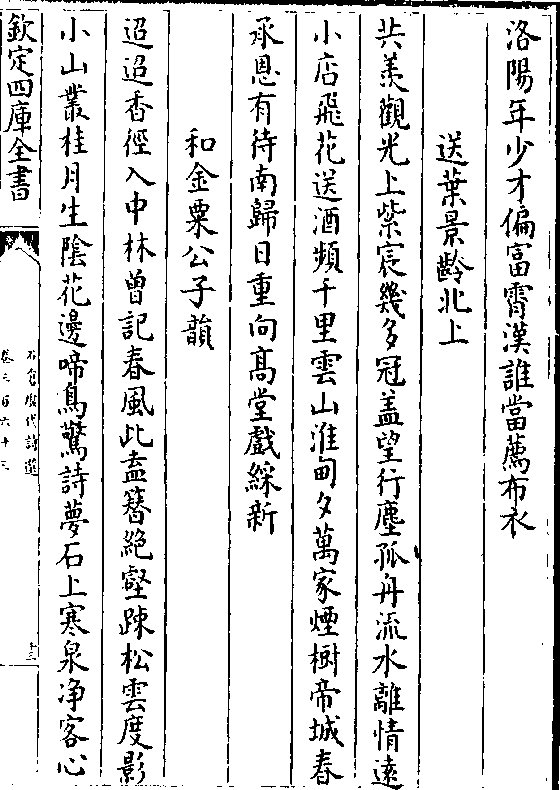 洛陽年少才偏富霄漢誰當薦布衣
送葉景齡北上
共羨觀光上紫宸幾多冠盖望行塵孤舟流水離情遠
小店飛花送酒頻千里雲山淮甸夕萬家煙樹帝城春
承恩有待南歸日重向髙堂戲綵新
和金粟公子韻
迢迢香徑入中林曾記春風此盍簪絶壑踈松雲度影
小山叢桂月生陰花邊啼鳥驚詩夢石上寒泉净客心
欽定四庫全書
石倉歴代詩選
卷三百六十三
十三